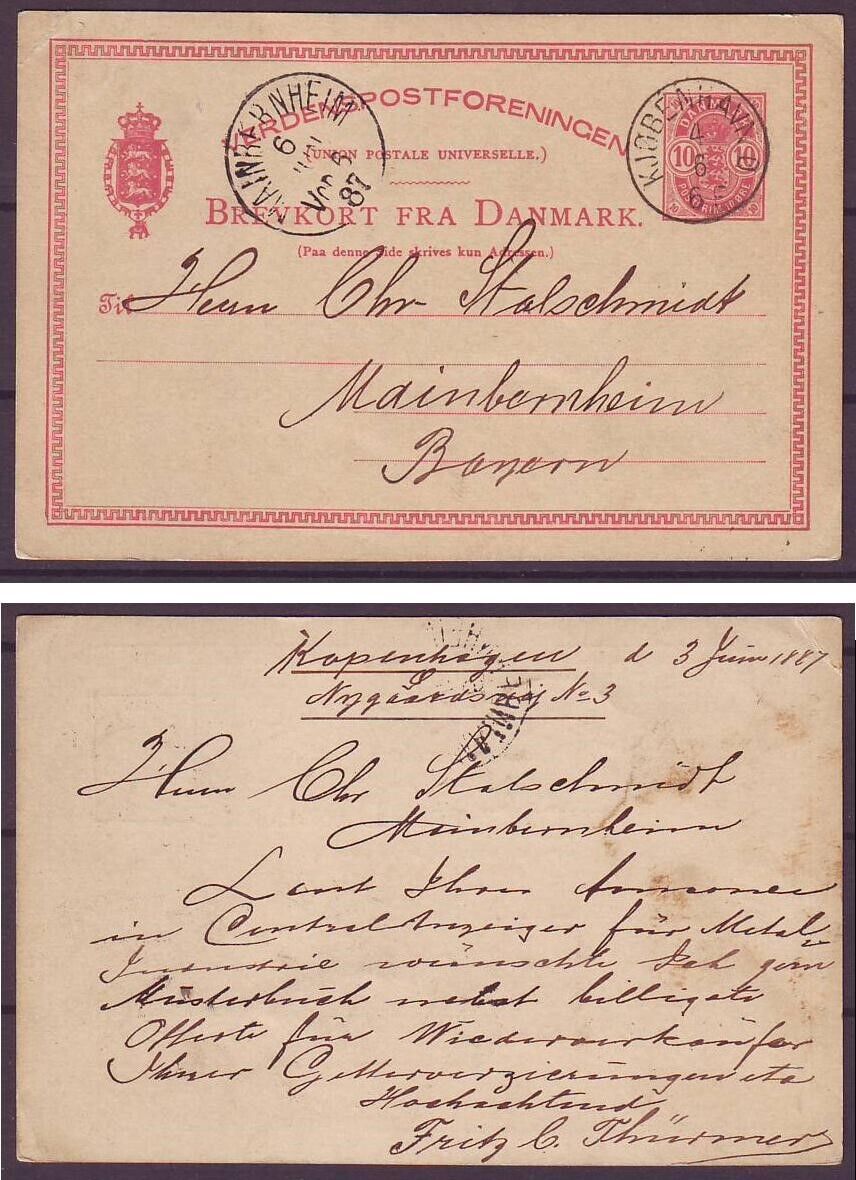 VERDENSPOSTFORENINGEN
(UNION POSTALE UNIVERSELLE.)
BREVKORT FRA DANMARK.
(Paa denne Side skrives kun Adressen.)
MAINBERNHEIM
6
JUNI
Vor
87
KJØBENHAVN
4
6
DANMARK
10 10
Til Herrn Chr Stalschmidt
Mainbernheim
Bayern
Kopenhagen d 3 Juni 1887
Nygaardsvej No 3
Herrn Chr Stalschmidt
Mainbernheim
Laut Ihrer Annonce
in Central Anzeiger für Metal
Industrie wünschte Ich gern
Musterbuch nebst billigste
Offerte für Wiederverkäufer
Ihrer Getterverzierungen etc
Hochachtend
Fritz C. Thürmer